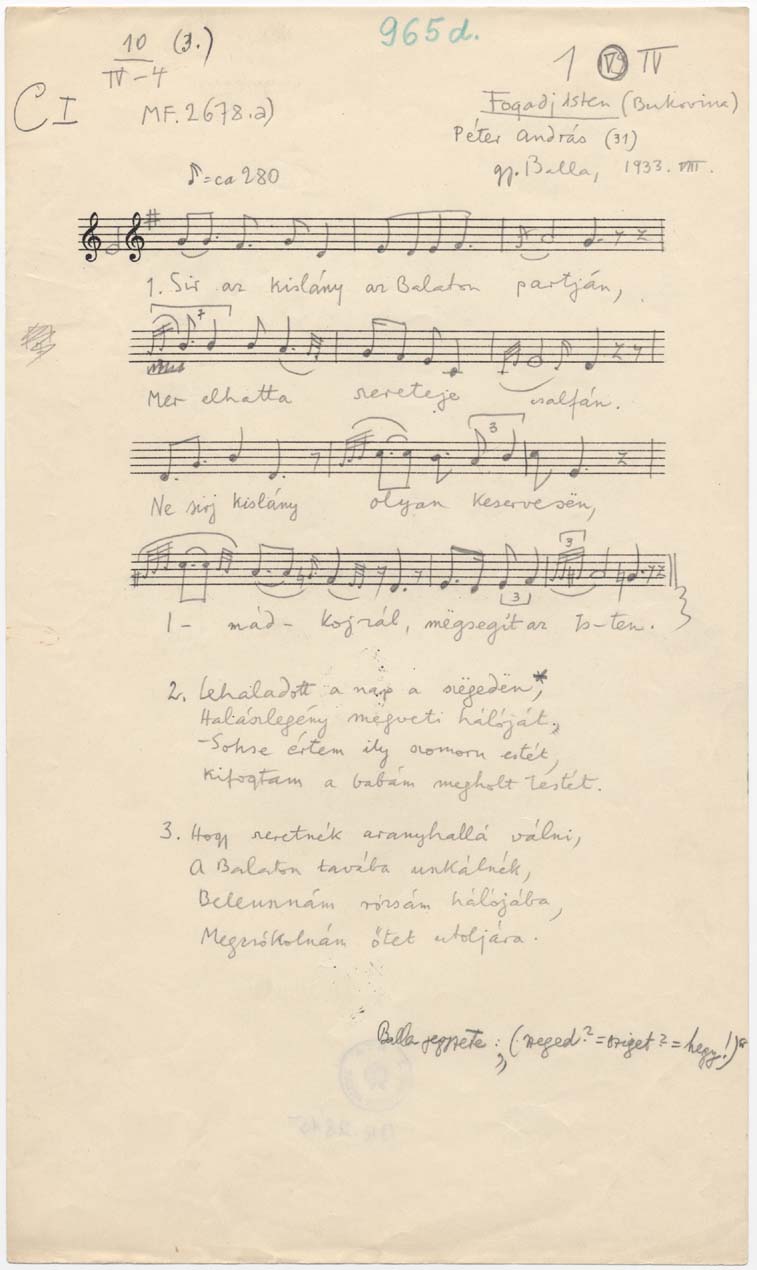 965d.
10 (3.)
IV-4
1 VI IV
C I
MF. 2678.a)
Fogadjisten (Bukovina)
Péter András (31)
gy. Balla, 1933. VIII.
♪=ca 280
1. Sir az kislány az Balaton partján,
7
Mer elhatta szereteje csalfán.
3
Ne sirj kislány olyan keservesën,
3
3
I- mád- kojzál, mëgsegít az Is-ten.
2. Lehaladott a nap a szëgedën,*
Halászlegény mëgveti hálóját,
-Sohse értem ily szomoru estét,
Kifogtam a babám megholt testét.
3. Hogy szeretnék aranyhallá válni,
A Balaton tavába unkálnék,
Beleunnám rózsám hálójába,
Megcsókolnám őtet utoljára.
Balla jegyzete: (szeged?=sziget?=hegy!)*